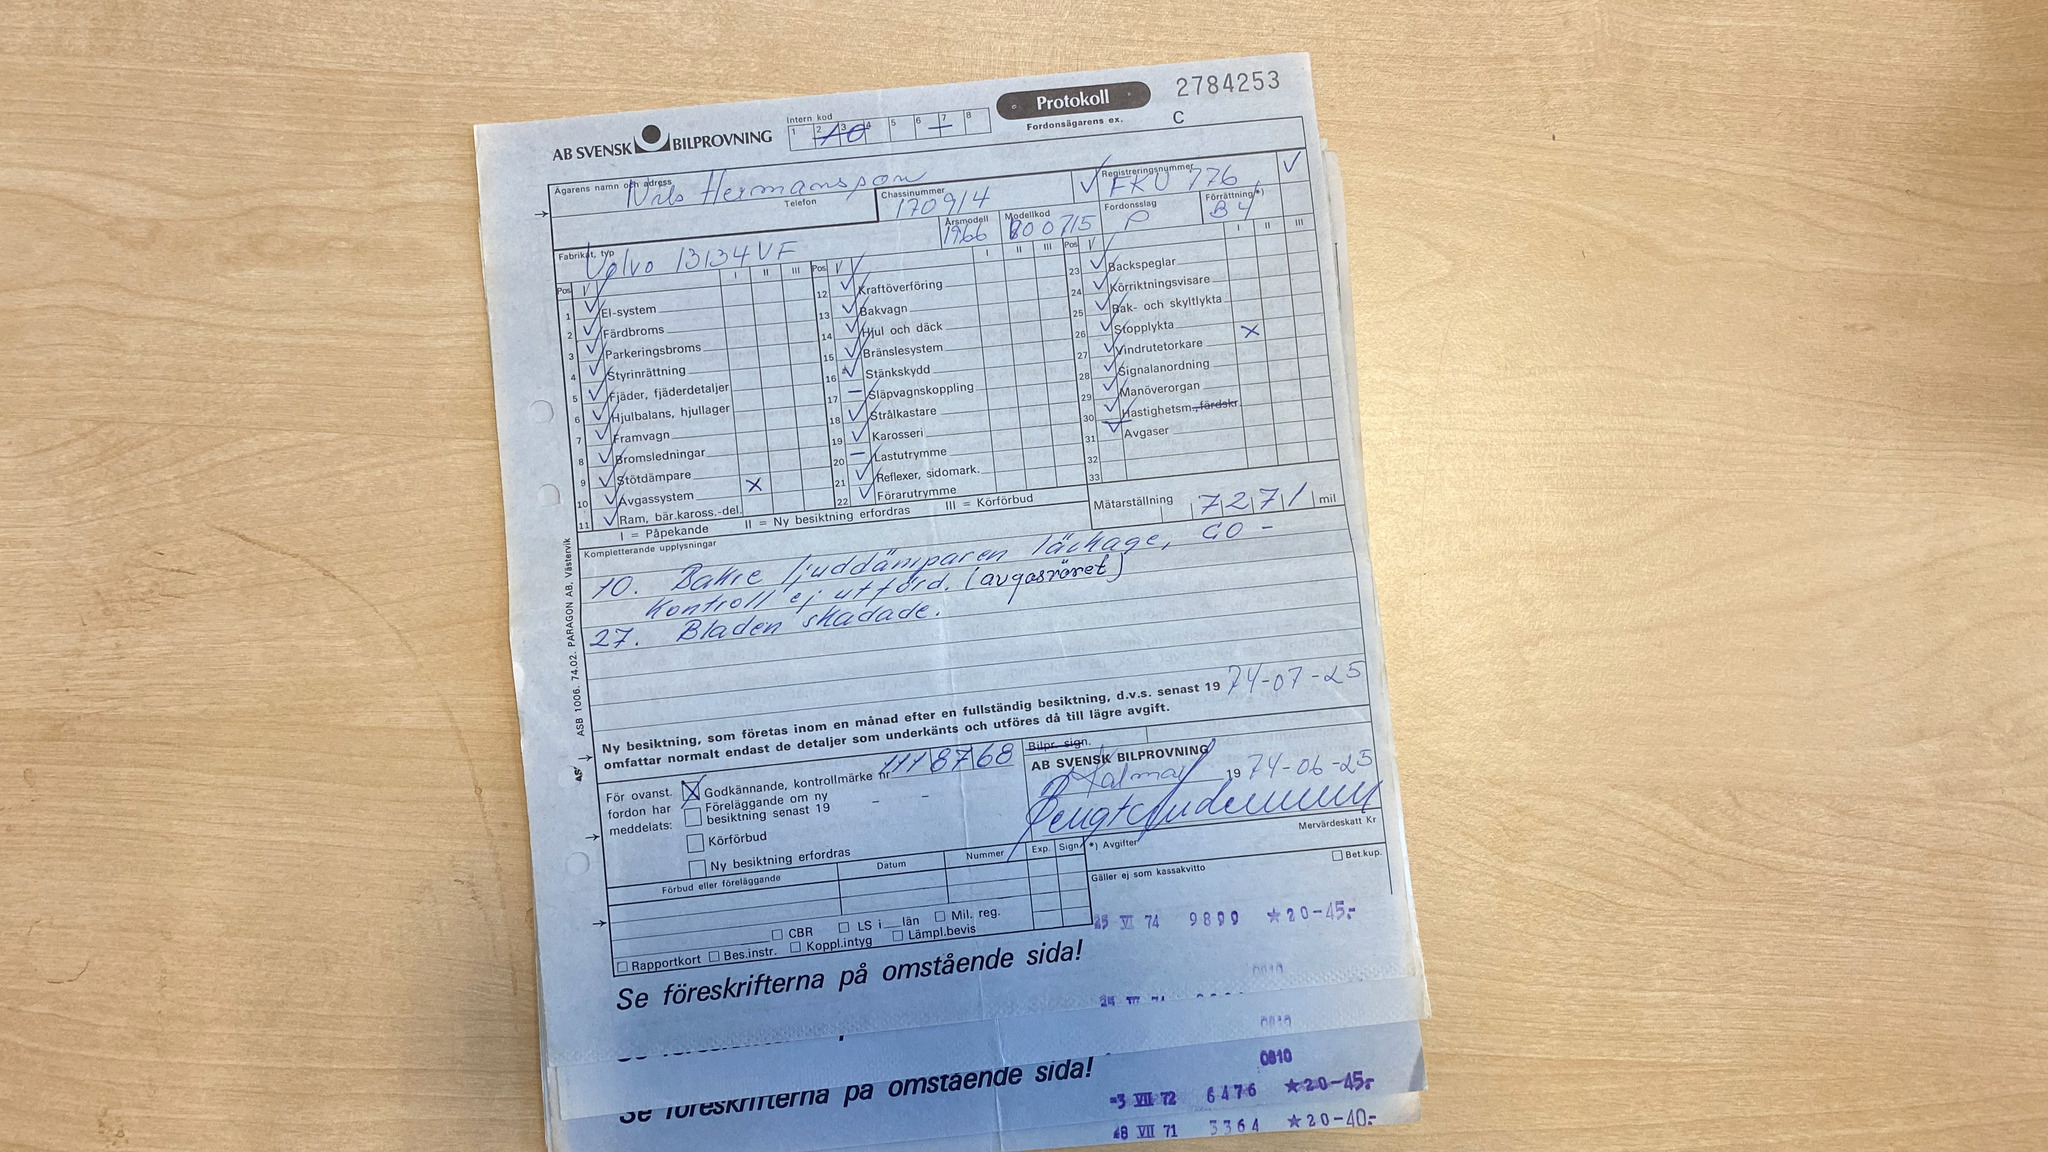 Protokoll
2784253
AB SVENSK BILPROVNING
Intern kod
1 2 3 4 5 6 7 8
Fordonsägarens ex.
C
Ägarens namn och adress
Nils Hermansson
Telefon
Chassinummer
170914
Registreringsnummer
FKU 776
Fabrikat, typ
Volvo 13134 VF
Årsmodell
1966
Modellkod
800715
Fordonsslag
P
Förrättning*)
B4
Pos V I II III
1 El-system
2 Färdbroms
3 Parkeringsbroms
4 Styrinrättning
5 Fjäder, fjäderdetaljer
6 Hjulbalans, hjullager
7 Framvagn
8 Bromsledningar
9 Stötdämpare
10 Avgassystem X
11 Ram, bär.kaross.-del.
Pos V I II III
12 Kraftöverföring
13 Bakvagn
14 Hjul och däck
15 Bränslesystem
16 Stänkskydd
17 Släpvagnskoppling
18 Strålkastare
19 Karosseri
20 Lastutrymme
21 Reflexer, sidomark.
22 Förarutrymme
Pos V I II III
23 Backspeglar
24 Körriktningsvisare
25 Bak- och skyltlykta
26 Stopplykta
27 Vindrutetorkare X
28 Signalanordning
29 Manöverorgan
30 Hastighetsm., färdskr.
31 Avgaser
32
33
I = Påpekande II = Ny besiktning erfordras III = Körförbud
Mätarställning 7271 mil
Kompletterande upplysningar
10. Bakre ljuddämparen läckage, CO -
Kontroll ej utförd. (avgasröret)
27. Bladen skadade.
Ny besiktning, som företas inom en månad efter en fullständig besiktning, d.v.s. senast 19 74-07-25
omfattar normalt endast de detaljer som underkänts och utföres då till lägre avgift.
För ovanst. fordon har meddelats:
Godkännande, kontrollmärke nr 1118768
Föreläggande om ny
besiktning senast 19 - -
Körförbud
Ny besiktning erfordras
Bilpr. sign.
AB SVENSK BILPROVNING
Kalmar 19 74-06-25
Bengt
Förbud eller föreläggande
Datum
Nummer
Exp.
Sign
*) Avgifter
Mervärdeskatt Kr
Gäller ej som kassakvitto
Bet.kup.
CBR LS i län Mil. reg.
Rapportkort Bes.instr. Koppl.intyg Lämpl.bevis
25 VI 74 9899 ★20-45.-
Se föreskrifterna på omstående sida!
ASB 1006. 74.02. PARAGON AB, Västervik
0810
Se föreskrifterna på omstående sida!
-3 VII 72 6476 ★20-45.-
28 VII 71 3364 ★20-40.-